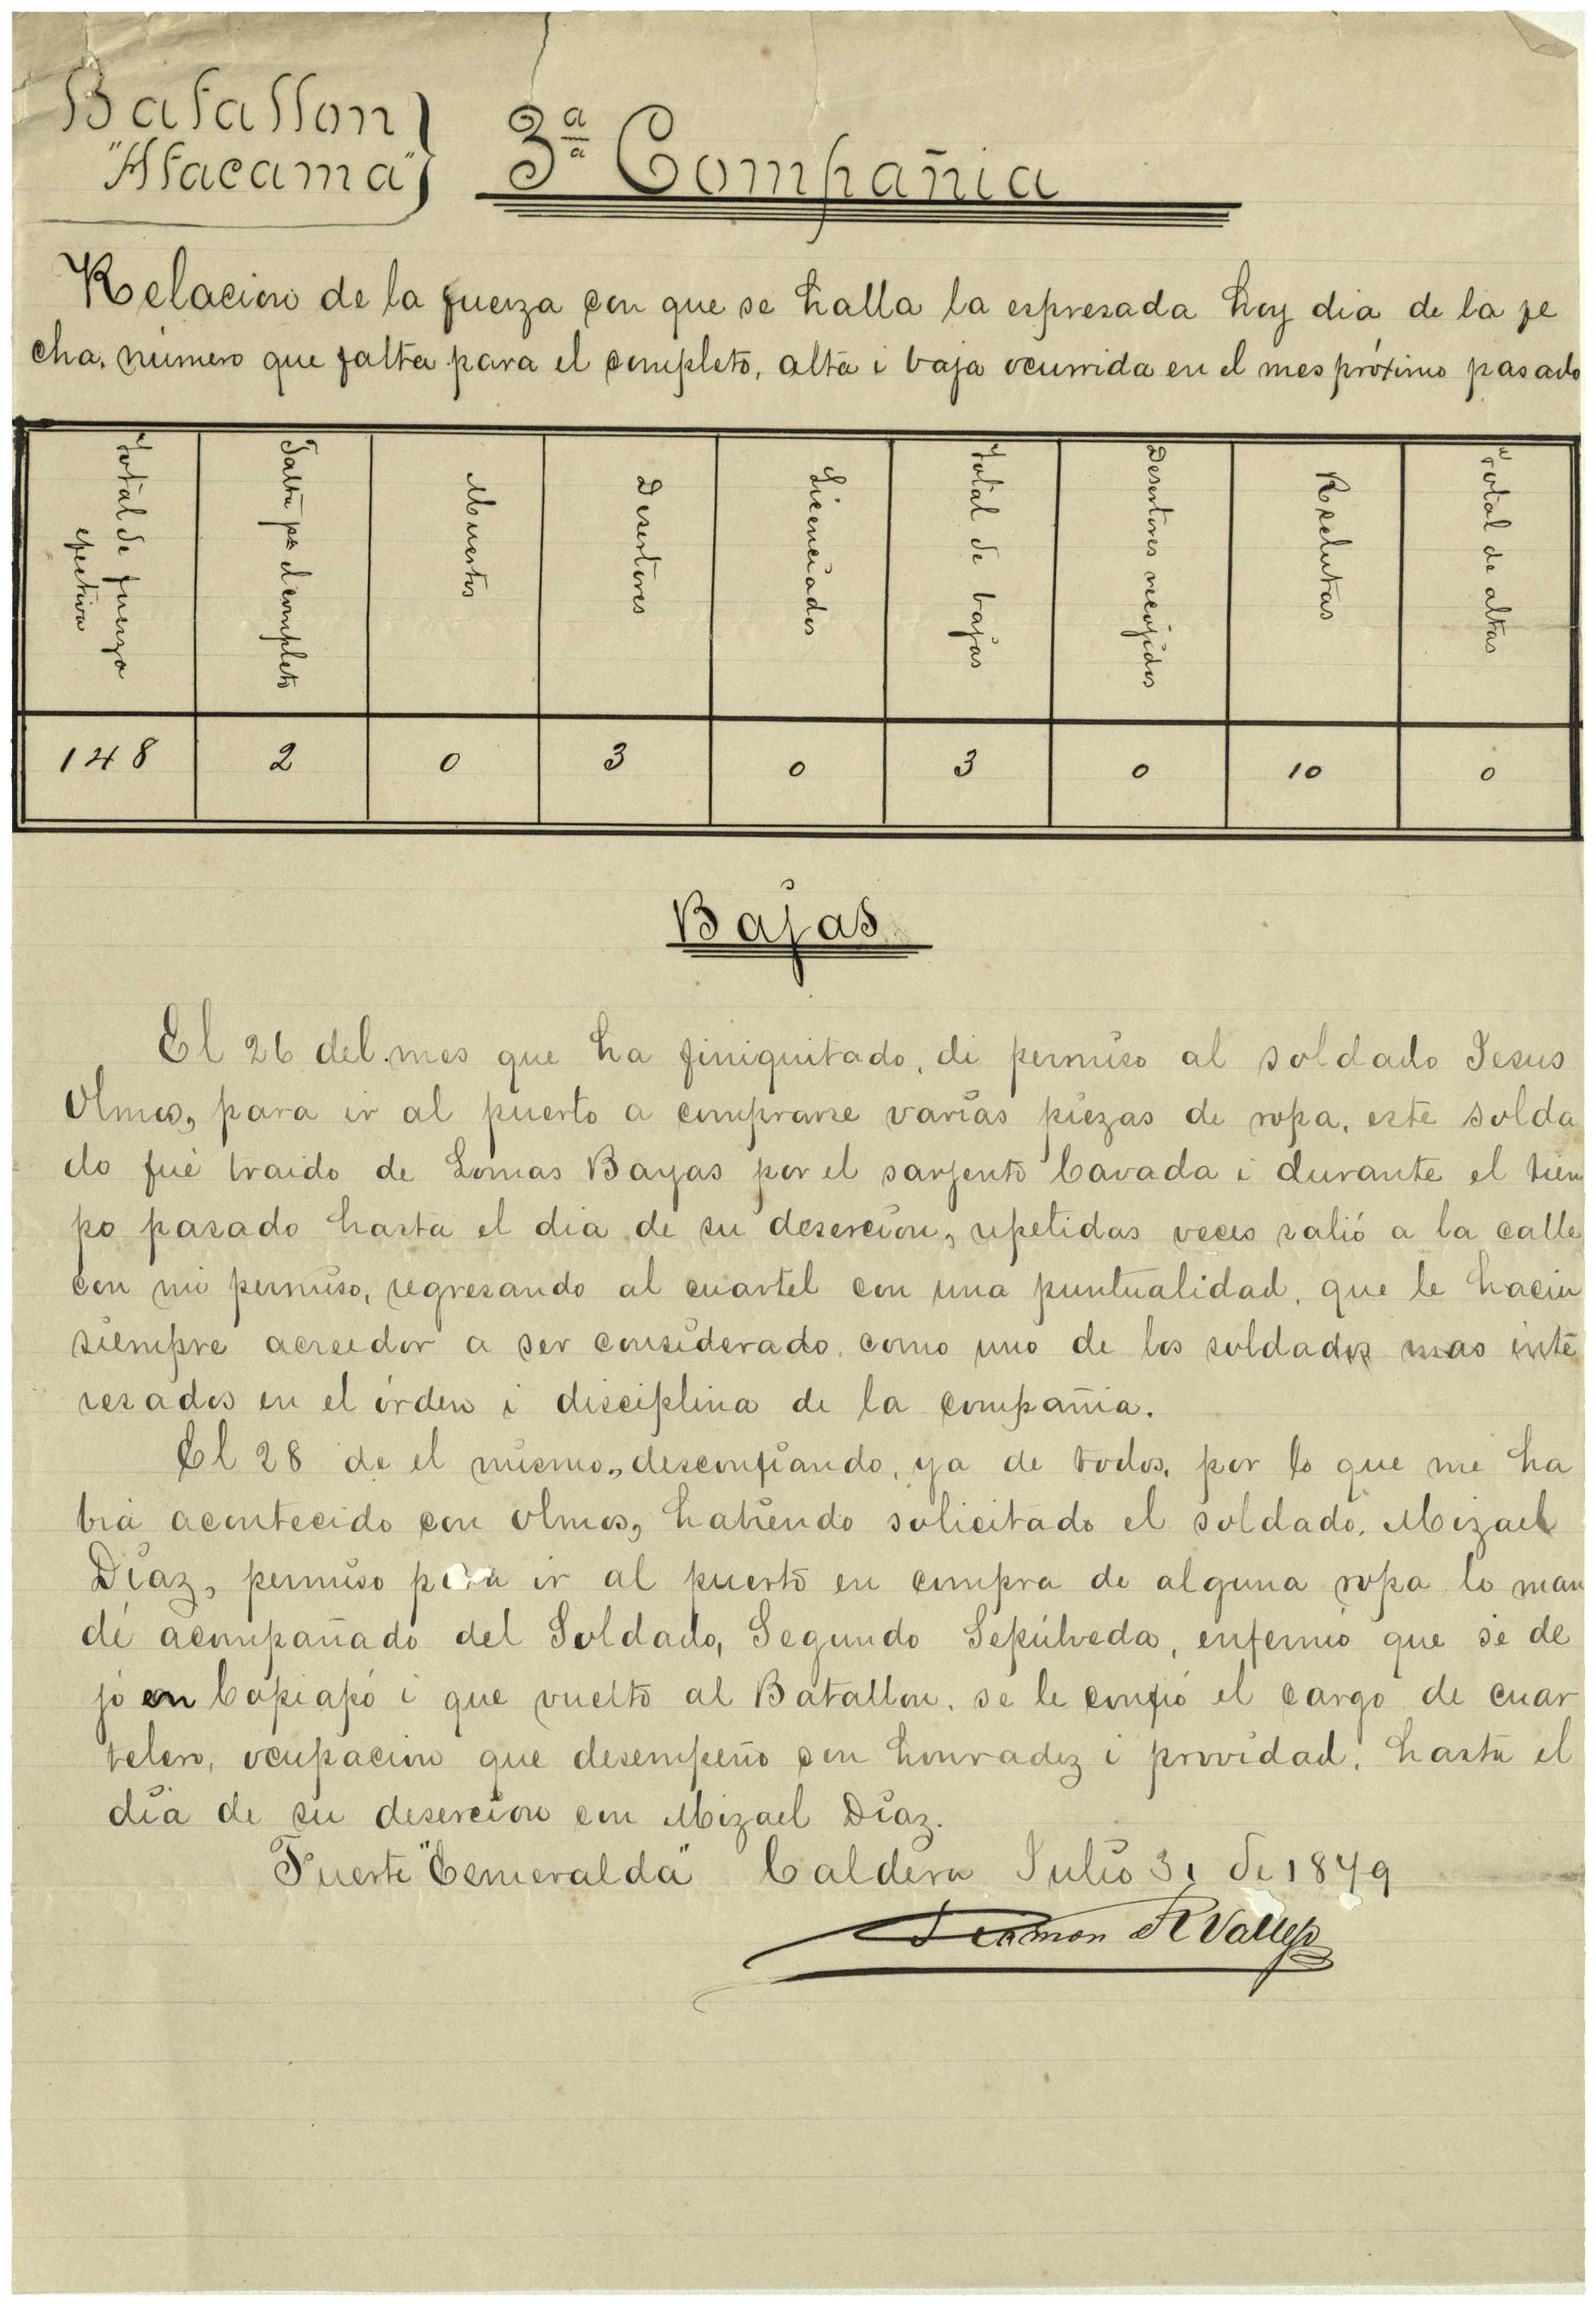 Batallon
"Atacama"
3ª Compañia
Relacion de la fuerza con que se halla la espresada hoy dia de la fe
cha, número que falta para el completo, alta i baja ocurrida en el mes próximo pasado
Total de fuerza efectiva
Falta pa el completo
Muertos
Desertores
Licenciados
Total de bajas
Desertores recojidos
Reclutas
Total de altas
148 2 0 3 0 3 0 10 0
Bajas
El 26 del mes que ha finiquitado, di permiso al soldado Jesus
Olmos, para ir al puerto a comprarse varias piezas de ropa, este solda
do fué traido de Lomas Bayas por el sarjento Cavada i durante el tiem
po pasado hasta el dia de su desercion, repetidas veces salió a la calle
con mi permiso, regresando al cuartel con una puntualidad, que le hacia
siempre acreedor a ser considerado, como uno de los soldados mas inte
resados en el órden i disciplina de la compañia.
El 28 de el mismo, desconfiando, ya de todos, por lo que me ha
bia acontecido con Olmos, habiendo solicitado el soldado, Mizael
Diaz, permiso para ir al puerto en compra de alguna ropa lo man
dé acompañado del Soldado, Segundo Sepúlveda, enfermo que se de
jó en Copiapó i que vuelto al Batallon, se le confió el cargo de cuar
telero, ocupacion que desempeño con honradez i providad, hasta el
dia de su desercion con Mizael Diaz.
Fuerte "Esmeralda" Caldera Julio 31 de 1879
Ramon R Vallejo